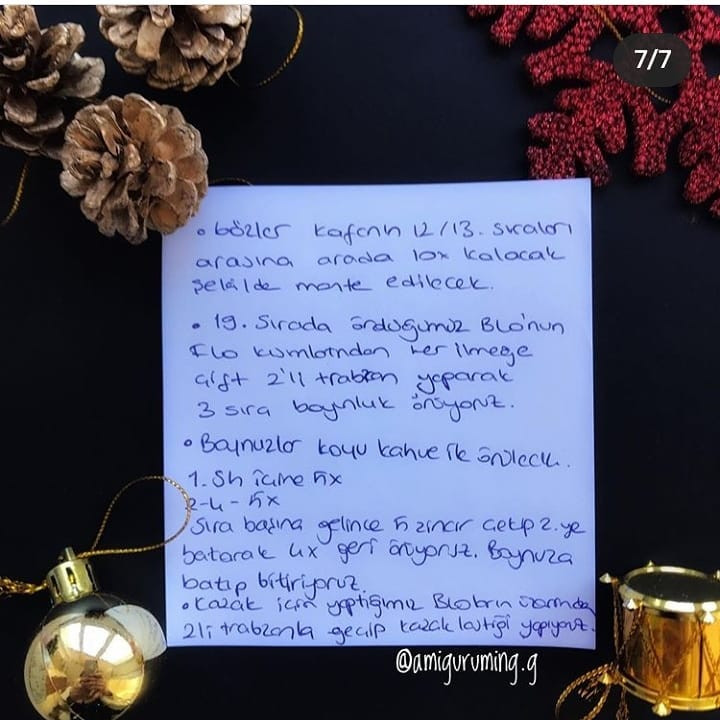 7/7
• Gözler kafanın 12/13. sıraları
arasına arada 10x kalacak
şekilde monte edilecek.
• 19. Sırada ördüğümüz BLO'nun
FLO kısımlarından her ilmeğe
çift 2'li trabzan yaparak
3 sıra boyunluk örüyoruz.
• Boynuzlar koyu kahve ile örülecek.
1. Sh içine 5x
2-4 - 5x
Sıra başına gelince 5 zincir çekip 2. ye
batarak 4x geri örüyoruz. Boynuza
batıp bitiriyoruz.
• Kazak için yaptığımız BLO'ların üzerinden
2li trabzanla geçip kazak lastiği yapıyoruz.
@amiguruming.g